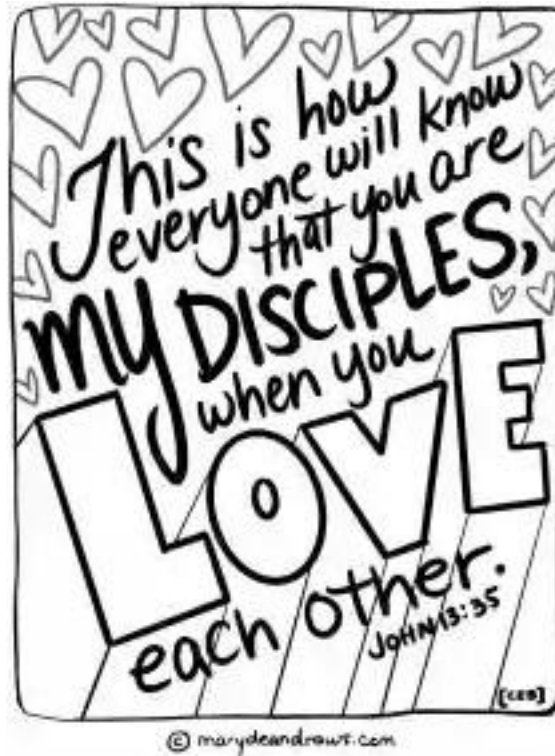 This is how
everyone will know
that you are
my DISCIPLES,
when you
LOVE
each other.
JOHN 13:35
[CEB]
© marydeandraws.com